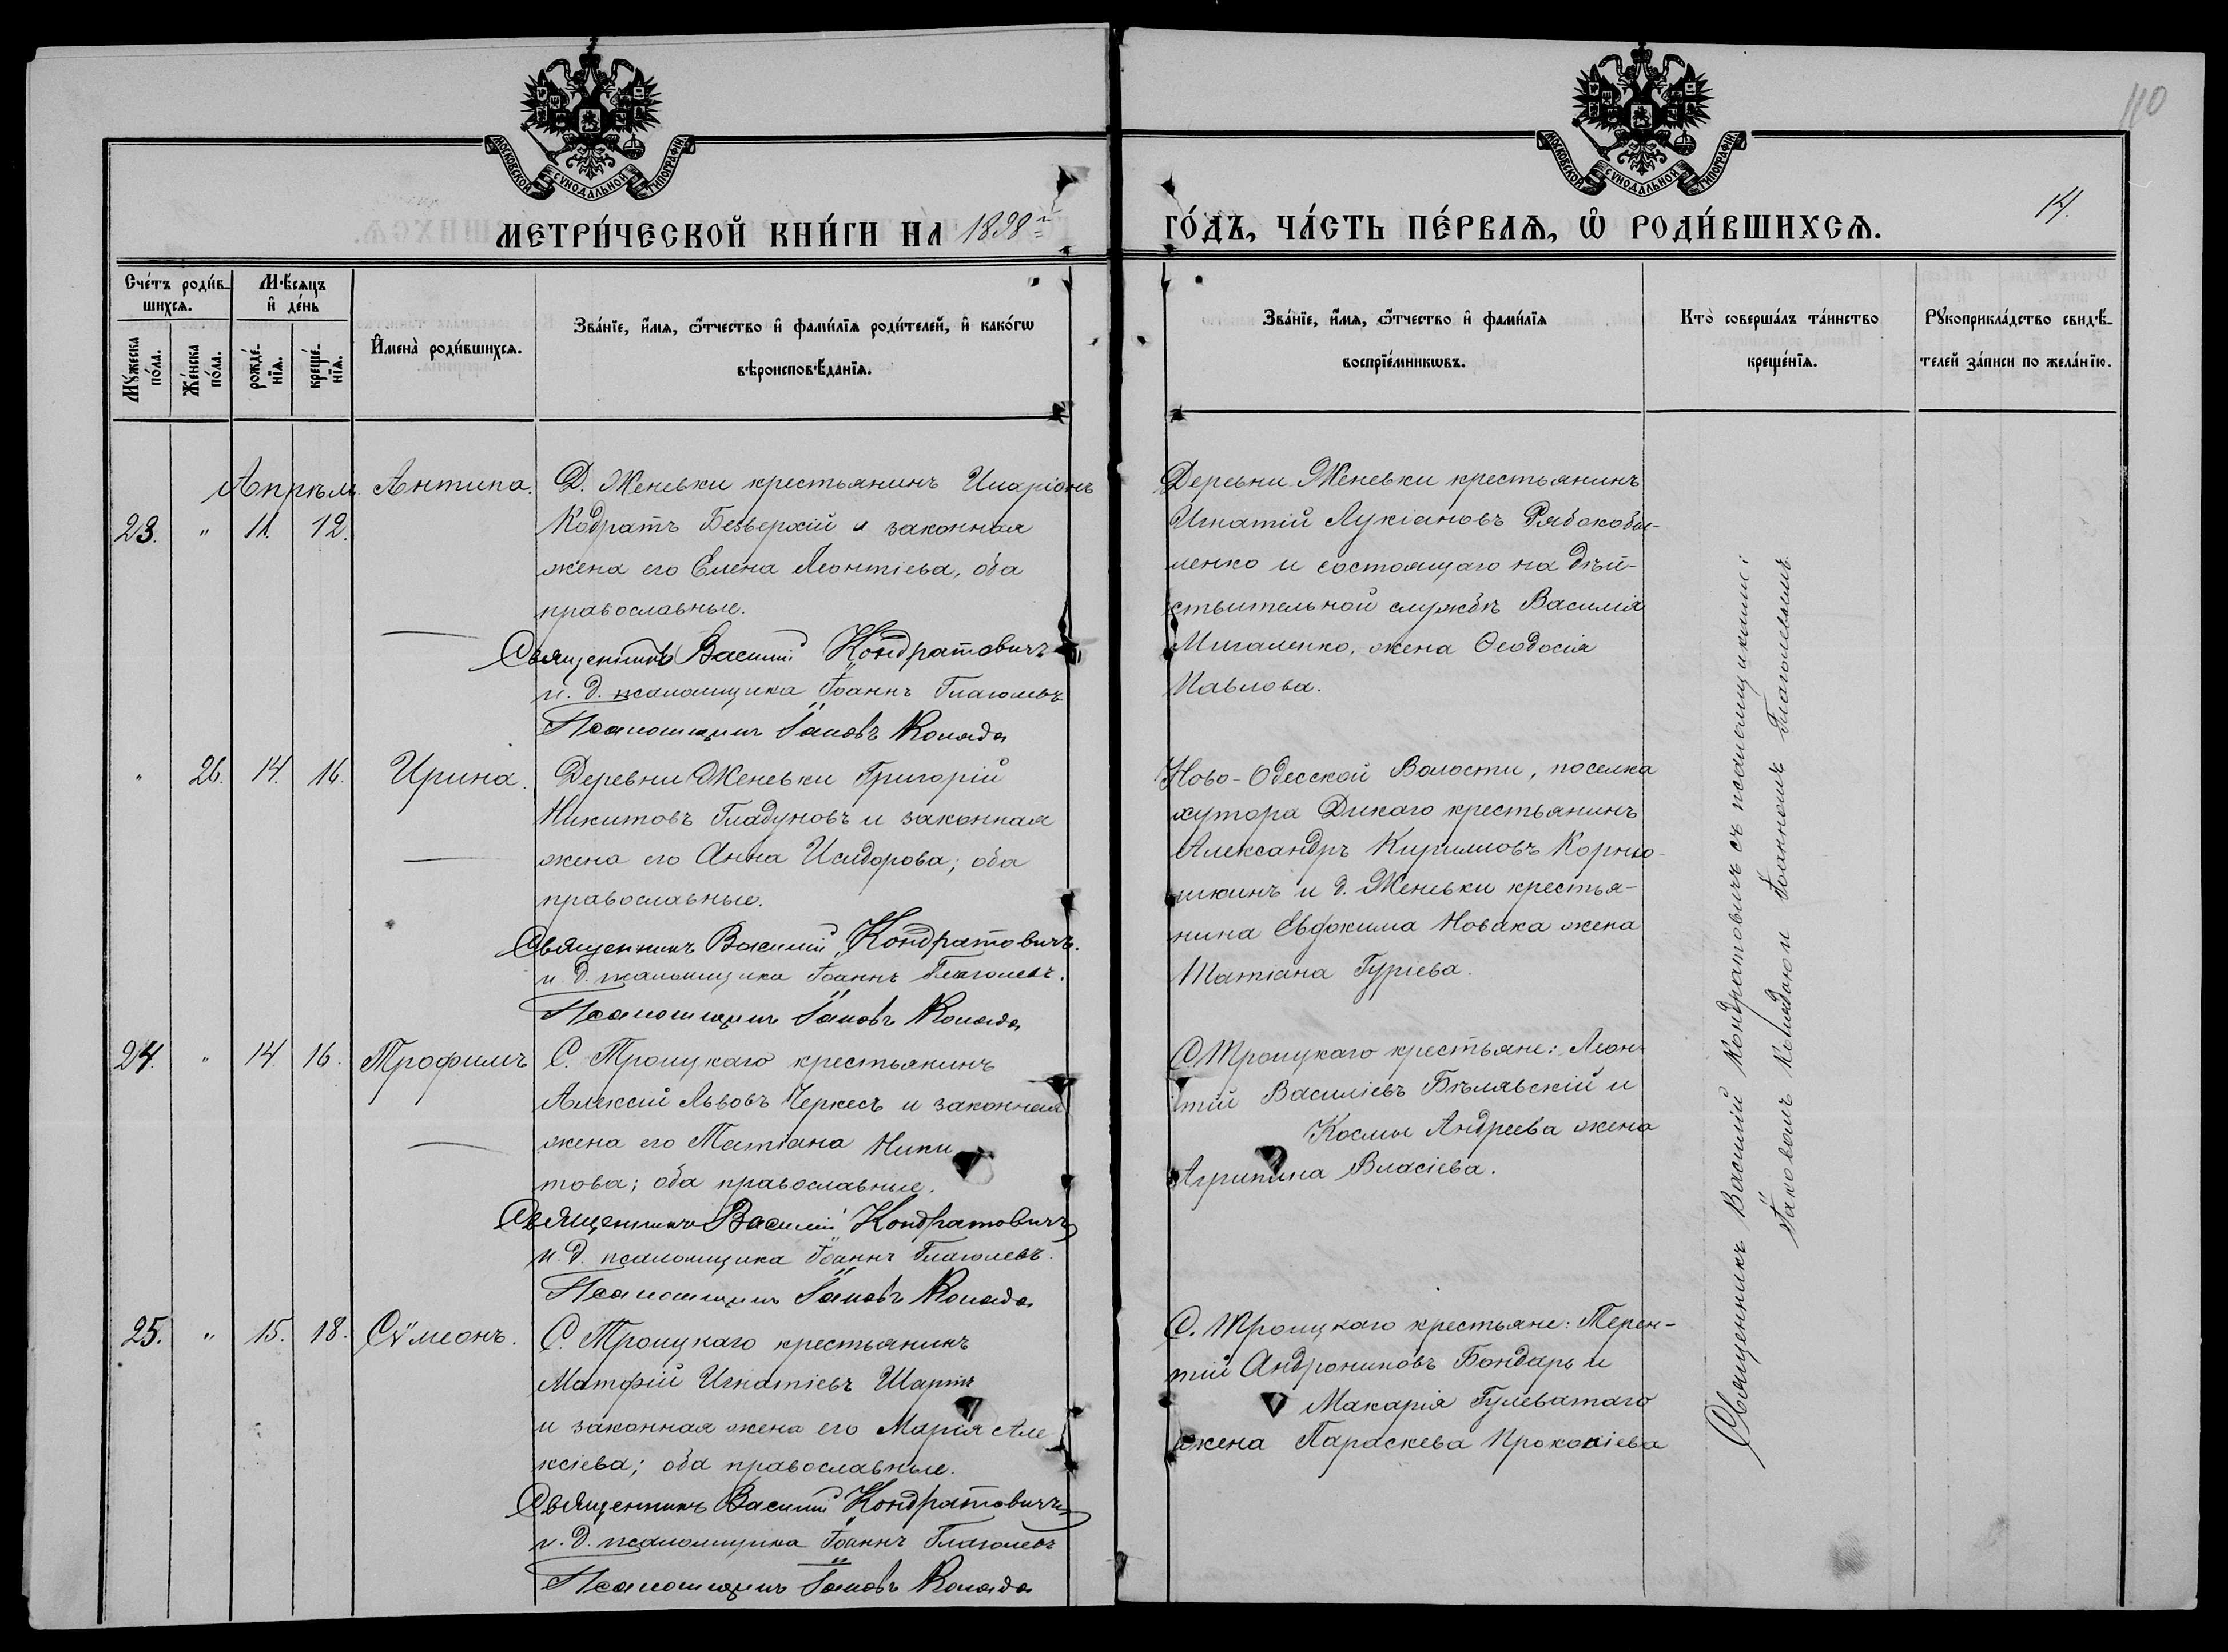 110
МОСКОВСКОЙ СѴНОДАЛЬНОЙ ТИПОГРАФІИ
МОСКОВСКОЙ СѴНОДАЛЬНОЙ ТИПОГРАФІИ
14.
МЕТРИ́ЧЕСКОЙ КНИ́ГИ НА 1898й
ГО́ДЪ, ЧА́СТЬ ПЕ́РВАѦ, Ѡ҆ РОДИ́ВШИХСѦ.
Сче́тъ роди́в-
шихсѧ.
Мꙋ́жеска
по́ла.
Же́нска
по́ла.
Мѣ́сѧцъ
и҆ де́нь
рожде́-
нїѧ.
креще́-
нїѧ.
И҆мена̀ роди́вшихсѧ.
Зва́нїе, и҆́мѧ, ѻ҆́тчество и҆ фами́лїѧ роди́телей, и҆ како́гѡ
вѣроисповѣ́данїѧ.
Зва́нїе, и҆́мѧ, ѻ҆́тчество и҆ фами́лїѧ
воспрїе́мникѡвъ.
Кто̀ соверша́лъ та́инство
креще́нїѧ.
Рꙋкоприкла́дство свидѣ́-
телей за́писи по жела́нїю.
Апрѣль
23. " 11. 12.
Антипа.
Д. Женевки крестьянинъ Иларіонъ
Кодратъ Безверхій и законная
жена его Елена Леонтіева, оба
православные.
Священникъ Василій Кондратовичъ
и. д. псаломщика Іоаннъ Глаголевъ
Псаломщикъ Іаковъ Коляда
Деревни Женевки крестьянинъ
Игнатій Лукіановъ Рябокобы-
ленко и состоящаго на дѣй-
ствительной службѣ Василія
Мигаленко, жена Ѳеодосія
Павлова.
" 26. 14. 16.
Ирина.
Деревни Женевки Григорій
Никитовъ Гладуновъ и законная
жена его Анна Исидорова; оба
православные.
Священникъ Василій Кондратовичъ.
и. д. псаломщика Іоаннъ Глаголевъ.
Псаломщикъ Іаковъ Коляда
Ново-Одесской Волости, поселка
хутора Дикаго крестьянинъ
Александръ Кирилловъ Корню-
шкинъ и д. Женевки крестья-
нина Евфокима Новака жена
Татіана Гуріева.
24. " 14. 16.
Трофимъ
С. Троицкаго крестьянинъ
Алексій Львовъ Черкесъ и законная
жена его Татіана Ники
това; оба православные.
Священникъ Василій Кондратовичъ
и. д. псаломщика Іоаннъ Глаголевъ.
Псаломщикъ Іаковъ Коляда
С. Троицкаго крестьяне: Леон-
тій Василіевъ Бѣлявскій и
Космы Андреева жена
Агрипина Власіева.
25. " 15. 18.
Сѵмеонъ.
С. Троицкаго крестьянинъ
Матфій Игнатіевъ
и законная жена его Марія Але
ксіева; оба православные.
Священникъ Василій Кондратовичъ
и. д. псаломщика Іоаннъ Глаголевъ
Псаломщикъ Іаковъ Коляда
С. Троицкаго крестьяне: Терен-
тій Андрониковъ Бондарь и
Макарія Гулеватаго
жена Параскева Прокопіева
Священникъ Василій Кондратовичъ съ псаломщиками:
Іаковомъ Колядою и Іоанномъ Глаголевымъ